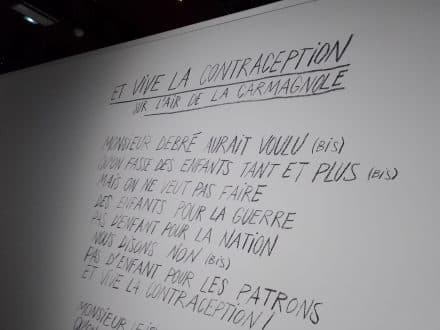 ET VIVE LA CONTRACEPTION
SUR L'AIR DE LA CARMAGNOLE
MONSIEUR DEBRÉ AURAIT VOULU (BIS)
QU'ON FASSE DES ENFANTS TANT ET PLUS (BIS)
MAIS ON NE VEUT PAS FAIRE
DES ENFANTS POUR LA GUERRE
PAS D'ENFANT POUR LA NATION
NOUS DISONS NON (BIS)
PAS D'ENFANT POUR LES PATRONS
ET VIVE LA CONTRACEPTION !
MONSIEUR